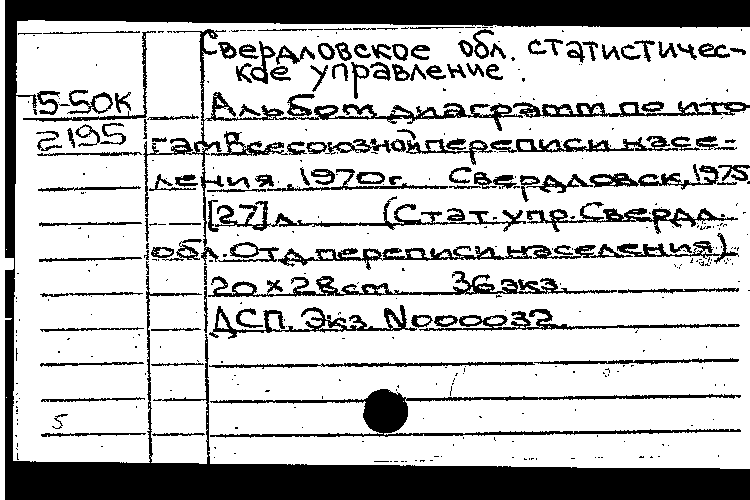 Свердловское обл. статистичес-
кое управление.
15-50К Альбом диаграмм по ито
2195 гам Всесоюзной переписи насе-
ления. 1970г. Свердловск, 1975
[27] л. (Стат. упр. Свердл.
обл. Отд переписи населения)
20 × 28 cm. 36 экз.
ДСП. Экз. N000032.
5